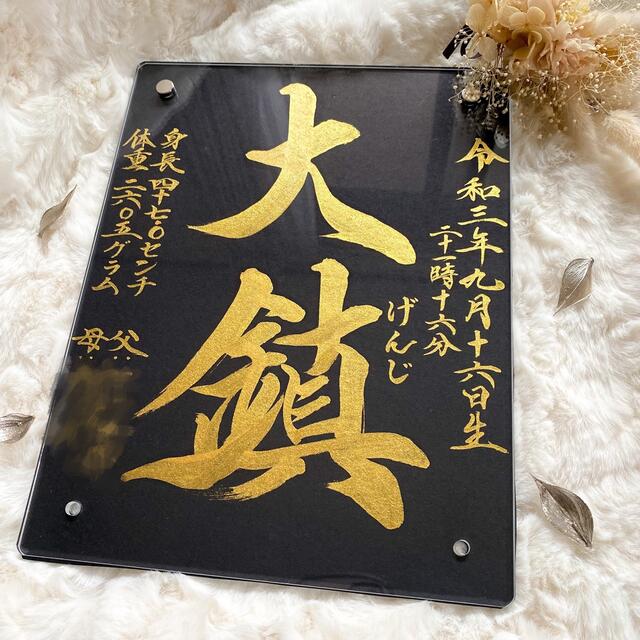 令和三年九月十六日生
二十一時十六分
大鎮
げんじ
身長 四十七.0センチ
体重 二六〇五グラム
父
母